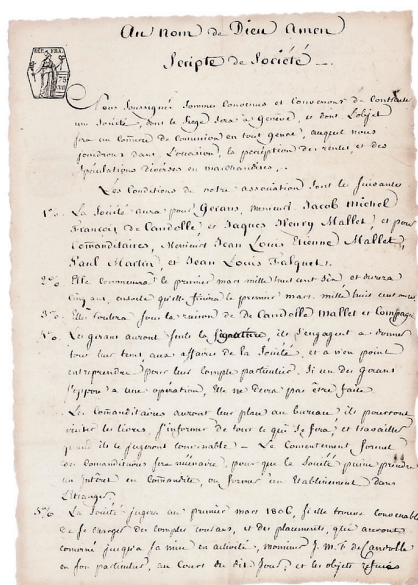 Au nom de Dieu Amen
Scripte de Société
REP. FRA.
75
Nous Soussigné Sommes Convenus et Convenons de Contracter
une Société, dont le Siege Sera a Genève, et dont l'objet
sera un Comerce de Comission en tout genre, auquel nous
joindrons dans l'occasion, la perception des rentes, et des
Spéculations diverses en marchandises.
Les Conditions de notre association Sont les Suivantes
1º La Société aura pour Gerans, messieurs Jacob Michel
François de Candolle et Jaques Henry Mallet, et pour
Comanditaires, Messieurs Jean Louis Etienne Mallet,
Paul Martin, et Jean Louis Falquet.
2º Elle Commencera le premier mars mille huit cent Six et durera
Cinq ans, ensorte qu'elle finira le premier mars mille huit cent onze
3º Elle Roulera sous la raison de de Candolle Mallet et Compagnie
4º Les gerans auront seuls la Signature, ils s'engagent a donner
tout leur tems aux affaires de la Société, et a n'en point
entreprendre pour leur Compte particulier. Si un des gerans
s'oppose a une opération, Elle ne devra pas être faite.
Les Comanditaires auront leur place au bureau, ils pourront
visiter les livres, s'informer de tout ce qui se fera, et travailler
quand ils le jugeront convenable - Le Consentement formel
des Comanditaires sera nécessaire, pour que la Société puisse prendre
un Intéret en Comandite, ou former un Etablissement dans
l'Etranger.
5º La Société jugera au premier mars 1806, si elle trouve convenable
de se charger des comptes courans, et des placements, que auront
convenu jusqu'a sa mise en activité, monsieur J. M. F. de Candolle
en son particulier, au Cours du dit Jour, et les objets refusés